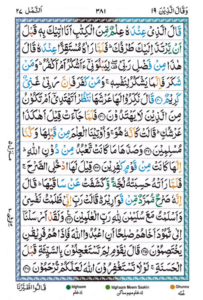 وَقَالَ الَّذِيْنَ ١٩ ٣٨١ اَلنَّمْل ٢٧
قَالَ الَّذِيْ عِنْدَهٗ عِلْمٌ مِّنَ الْكِتٰبِ اَنَا اٰتِيْكَ بِهٖ قَبْلَ
اَنْ يَّرْتَدَّ اِلَيْكَ طَرْفُكَ ؕ فَلَمَّا رَاٰهُ مُسْتَقِرًّا عِنْدَهٗ قَالَ
هٰذَا مِنْ فَضْلِ رَبِّيْ ۖ لِيَبْلُوَنِيْۤ ءَاَشْكُرُ اَمْ اَكْفُرُ ؕ وَمَنْ
شَكَرَ فَاِنَّمَا يَشْكُرُ لِنَفْسِهٖ ۚ وَمَنْ كَفَرَ فَاِنَّ رَبِّيْ غَنِيٌّ
كَرِيْمٌ ۞ قَالَ نَكِّرُوْا لَهَا عَرْشَهَا نَنْظُرْ اَتَهْتَدِيْۤ اَمْ تَكُوْنُ
مِنَ الَّذِيْنَ لَا يَهْتَدُوْنَ ۞ فَلَمَّا جَآءَتْ قِيْلَ اَهٰكَذَا
عَرْشُكِ ؕ قَالَتْ كَاَنَّهٗ هُوَ ۚ وَاُوْتِيْنَا الْعِلْمَ مِنْ قَبْلِهَا وَكُنَّا
مُسْلِمِيْنَ ۞ وَصَدَّهَا مَا كَانَتْ تَّعْبُدُ مِنْ دُوْنِ اللّٰهِ ؕ
اِنَّهَا كَانَتْ مِنْ قَوْمٍ كٰفِرِيْنَ ۞ قِيْلَ لَهَا ادْخُلِي الصَّرْحَ ۚ
فَلَمَّا رَاَتْهُ حَسِبَتْهُ لُجَّةً وَّكَشَفَتْ عَنْ سَاقَيْهَا ؕ قَالَ
اِنَّهٗ صَرْحٌ مُّمَرَّدٌ مِّنْ قَوَارِيْرَ ؕ قَالَتْ رَبِّ اِنِّيْ ظَلَمْتُ نَفْسِيْ
وَاَسْلَمْتُ مَعَ سُلَيْمٰنَ لِلّٰهِ رَبِّ الْعٰلَمِيْنَ ۞ وَلَقَدْ اَرْسَلْنَاۤ
اِلٰى ثَمُوْدَ اَخَاهُمْ صٰلِحًا اَنِ اعْبُدُوا اللّٰهَ فَاِذَا هُمْ فَرِيْقٰنِ
يَخْتَصِمُوْنَ ۞ قَالَ يٰقَوْمِ لِمَ تَسْتَعْجِلُوْنَ بِالسَّيِّئَةِ قَبْلَ
الْحَسَنَةِ ۚ لَوْلَا تَسْتَغْفِرُوْنَ اللّٰهَ لَعَلَّكُمْ تُرْحَمُوْنَ ۞
قَالُوا اطَّيَّرْنَا
Idghaam Idghaam Meem Saakin Ghunna